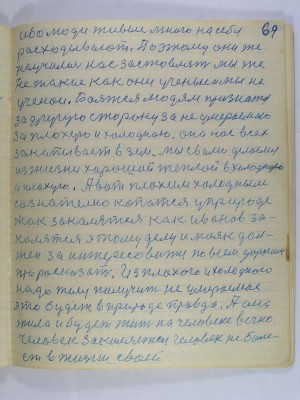 69
ибо люди живые много на себя
расходывают. Поэтому они же
научились нас заставлят мы же
не такие как они ученые мы не
ученои. Боятся людям признат
за другую сторону за не умераемою
за плохую и холодною. она нас всех
закапывает в зем. мы с вами делаемы
из жизни хорошой теплой в холодную
и плохую. А вот плохим холодным
сознателно копатся у природе
так закалятся как иванов за-
калятся этому делу и маяк дол-
жен за интересоватся по всем дорогим
про россказат. Из плохого и холодного
надо телу получит не умераемае
это будет в природе правда. А она
жила и будет жит на человеке вечно.
Человек закаляется человек не боле-
ет в жизни своей